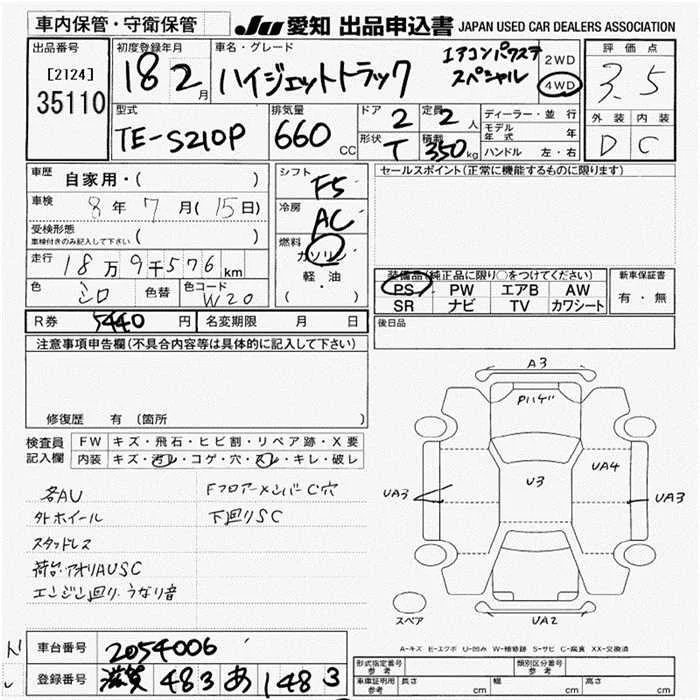 車内保管・守衛保管
JU 愛知 出品申込書 JAPAN USED CAR DEALERS ASSOCIATION
出品番号
[2124]
35110
初度登録年月
18 2月
車名・グレード
ハイジェットトラック
エアコンパワステ
スペシャル
2WD
4WD
評価点
3.5
外装 内装
D C
型式
TE-S210P
排気量
660 CC
ドア
2
定員
2人
形状
T
積載
350kg
ディーラー・並行
モデル年式 年
ハンドル 左・右
車歴
自家用・( )
車検
8年 7月(15日)
受検形態
車検付きのみ記入して下さい ( )
走行
18万9千576km
色
シロ
色替
色コード
W20
シフト
F5
冷房
AC
燃料
ガソリン
軽・油
( )
セールスポイント(正常に機能するものに限ります)
装備品(純正品に限り○をつけてください)
PS PW エアB AW
SR ナビ TV カワシート
新車保証書
有・無
後日品
R券 5440円
名変期限 月 日
注意事項申告欄(不具合内容等は具体的に記入して下さい)
修復歴 有 (箇所 )
検査員記入欄
FW キズ・飛石・ヒビ割・リペア跡・X要
内装 キズ・汚レ・コゲ・穴・スレ・キレ・破レ
各AU
外ホイール
スタッドレス
荷台・アオリAUSC
エンジン回り・うなり音
Fフロアーメンバー C穴
下回りSC
A3
Pハゲ
U3
UA4
UA3
UA3
UA2
スペア
A-キズ E-エクボ U-凹み W-補修跡 S-サビ C-腐食 XX-交換済
車台番号
2054006
登録番号
滋賀 483 あ 1483
形式指定番号
参考
類別区分番号
参考
車庫証明用
参考
長さ cm
幅 cm
高さ cm